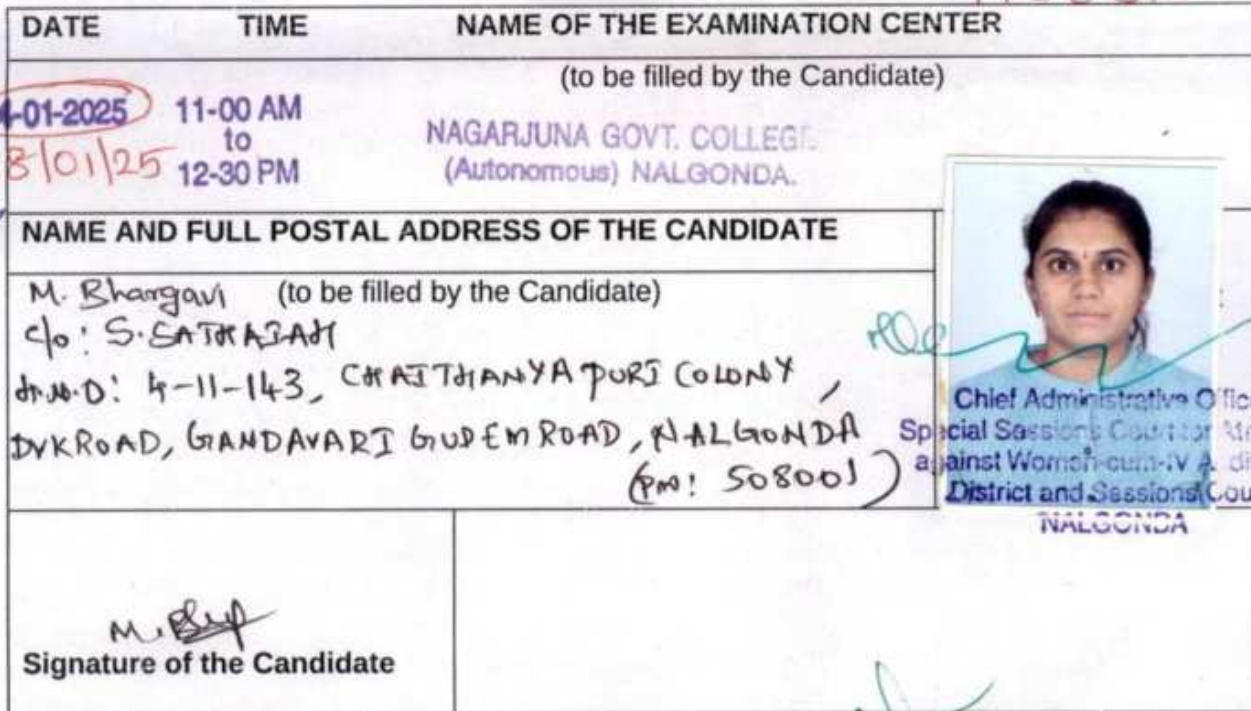 DATE TIME NAME OF THE EXAMINATION CENTER
(to be filled by the Candidate)
-01-2025 11-00 AM
to
8/01/25 12-30 PM
NAGARJUNA GOVT. COLLEGE
(Autonomous) NALGONDA.
NAME AND FULL POSTAL ADDRESS OF THE CANDIDATE
M. Bhargavi (to be filled by the Candidate)
c/o: S. SATHAIAH
H.N.O: 4-11-143, CHAITHANYAPURI COLONY,
DVKROAD, GANDAVARI GUDEM ROAD, NALGONDA
(PIN: 508001)
Chief Administrative Offic
Special Sessions Court for
against Women-cum-IV A
District and Sessions Cou
NALGONDA
M.
Signature of the Candidate